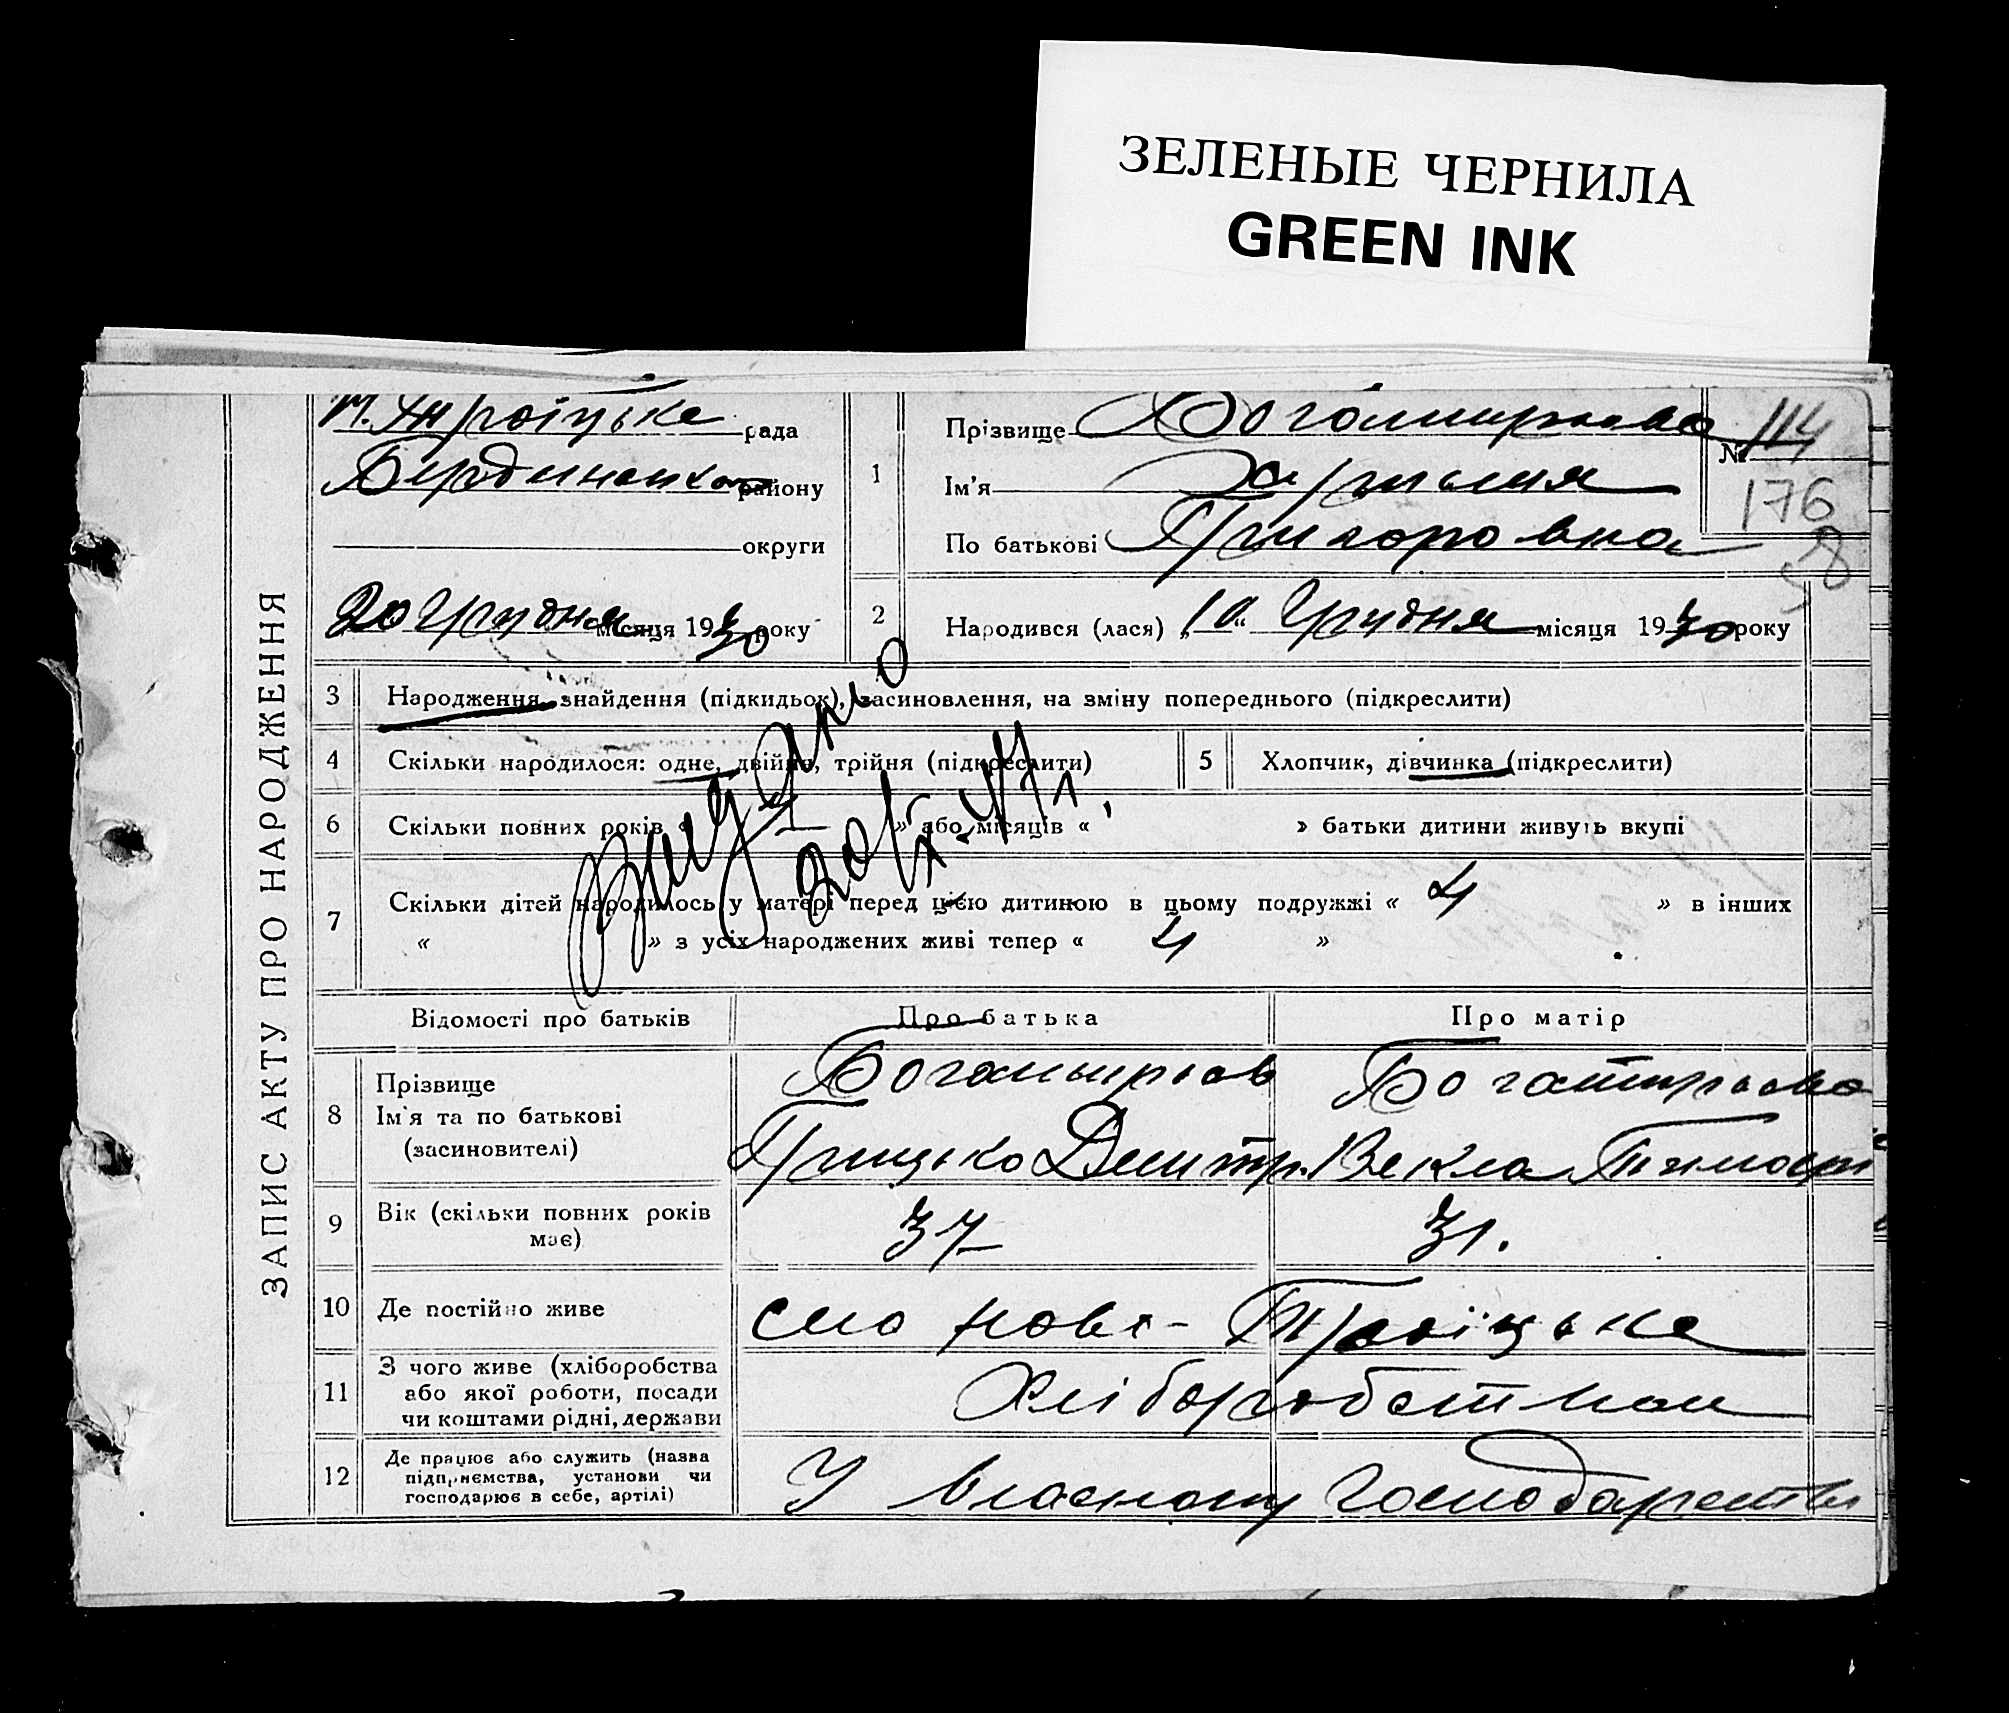 ЗЕЛЕНЫЕ ЧЕРНИЛА
GREEN INK
ЗАПИС АКТУ ПРО НАРОДЖЕННЯ
Н. Троїцьке рада
району
округи
20 Грудня місяця 1930 року
1
Прізвище
Ім'я
По батькові Григоровна
№ 114
176
58
2 Народився (лася) „10“ Грудня місяця 1930 року
3 Народження, знайдення (підкидьок), засиновлення, на зміну попереднього (підкреслити)
4 Скільки народилося: одне, двійня, трійня (підкреслити)
5 Хлопчик, дівчинка (підкреслити)
6 Скільки повних років « » або місяців « » батьки дитини живуть вкупі
7 Скільки дітей народилось у матері перед цією дитиною в цьому подружжі « 4 » в інших
« » з усіх народжених живі тепер « 4 »
Відомості про батьків Про батька Про матір
8 Прізвище
Ім'я та по батькові
(засиновителі)
Богатирьов
Грицько Дмитр.
Богатирьова
Векла Тимофі
9 Вік (скільки повних років має) 37 31.
10 Де постійно живе село Ново-Троїцьке
11 З чого живе (хліборобства
або якої роботи, посади
чи коштами рідні, держави
Хліборобством
12 Де працює або служить (назва
підприємства, установи чи
господарює в себе, артілі)
У власному господарстві